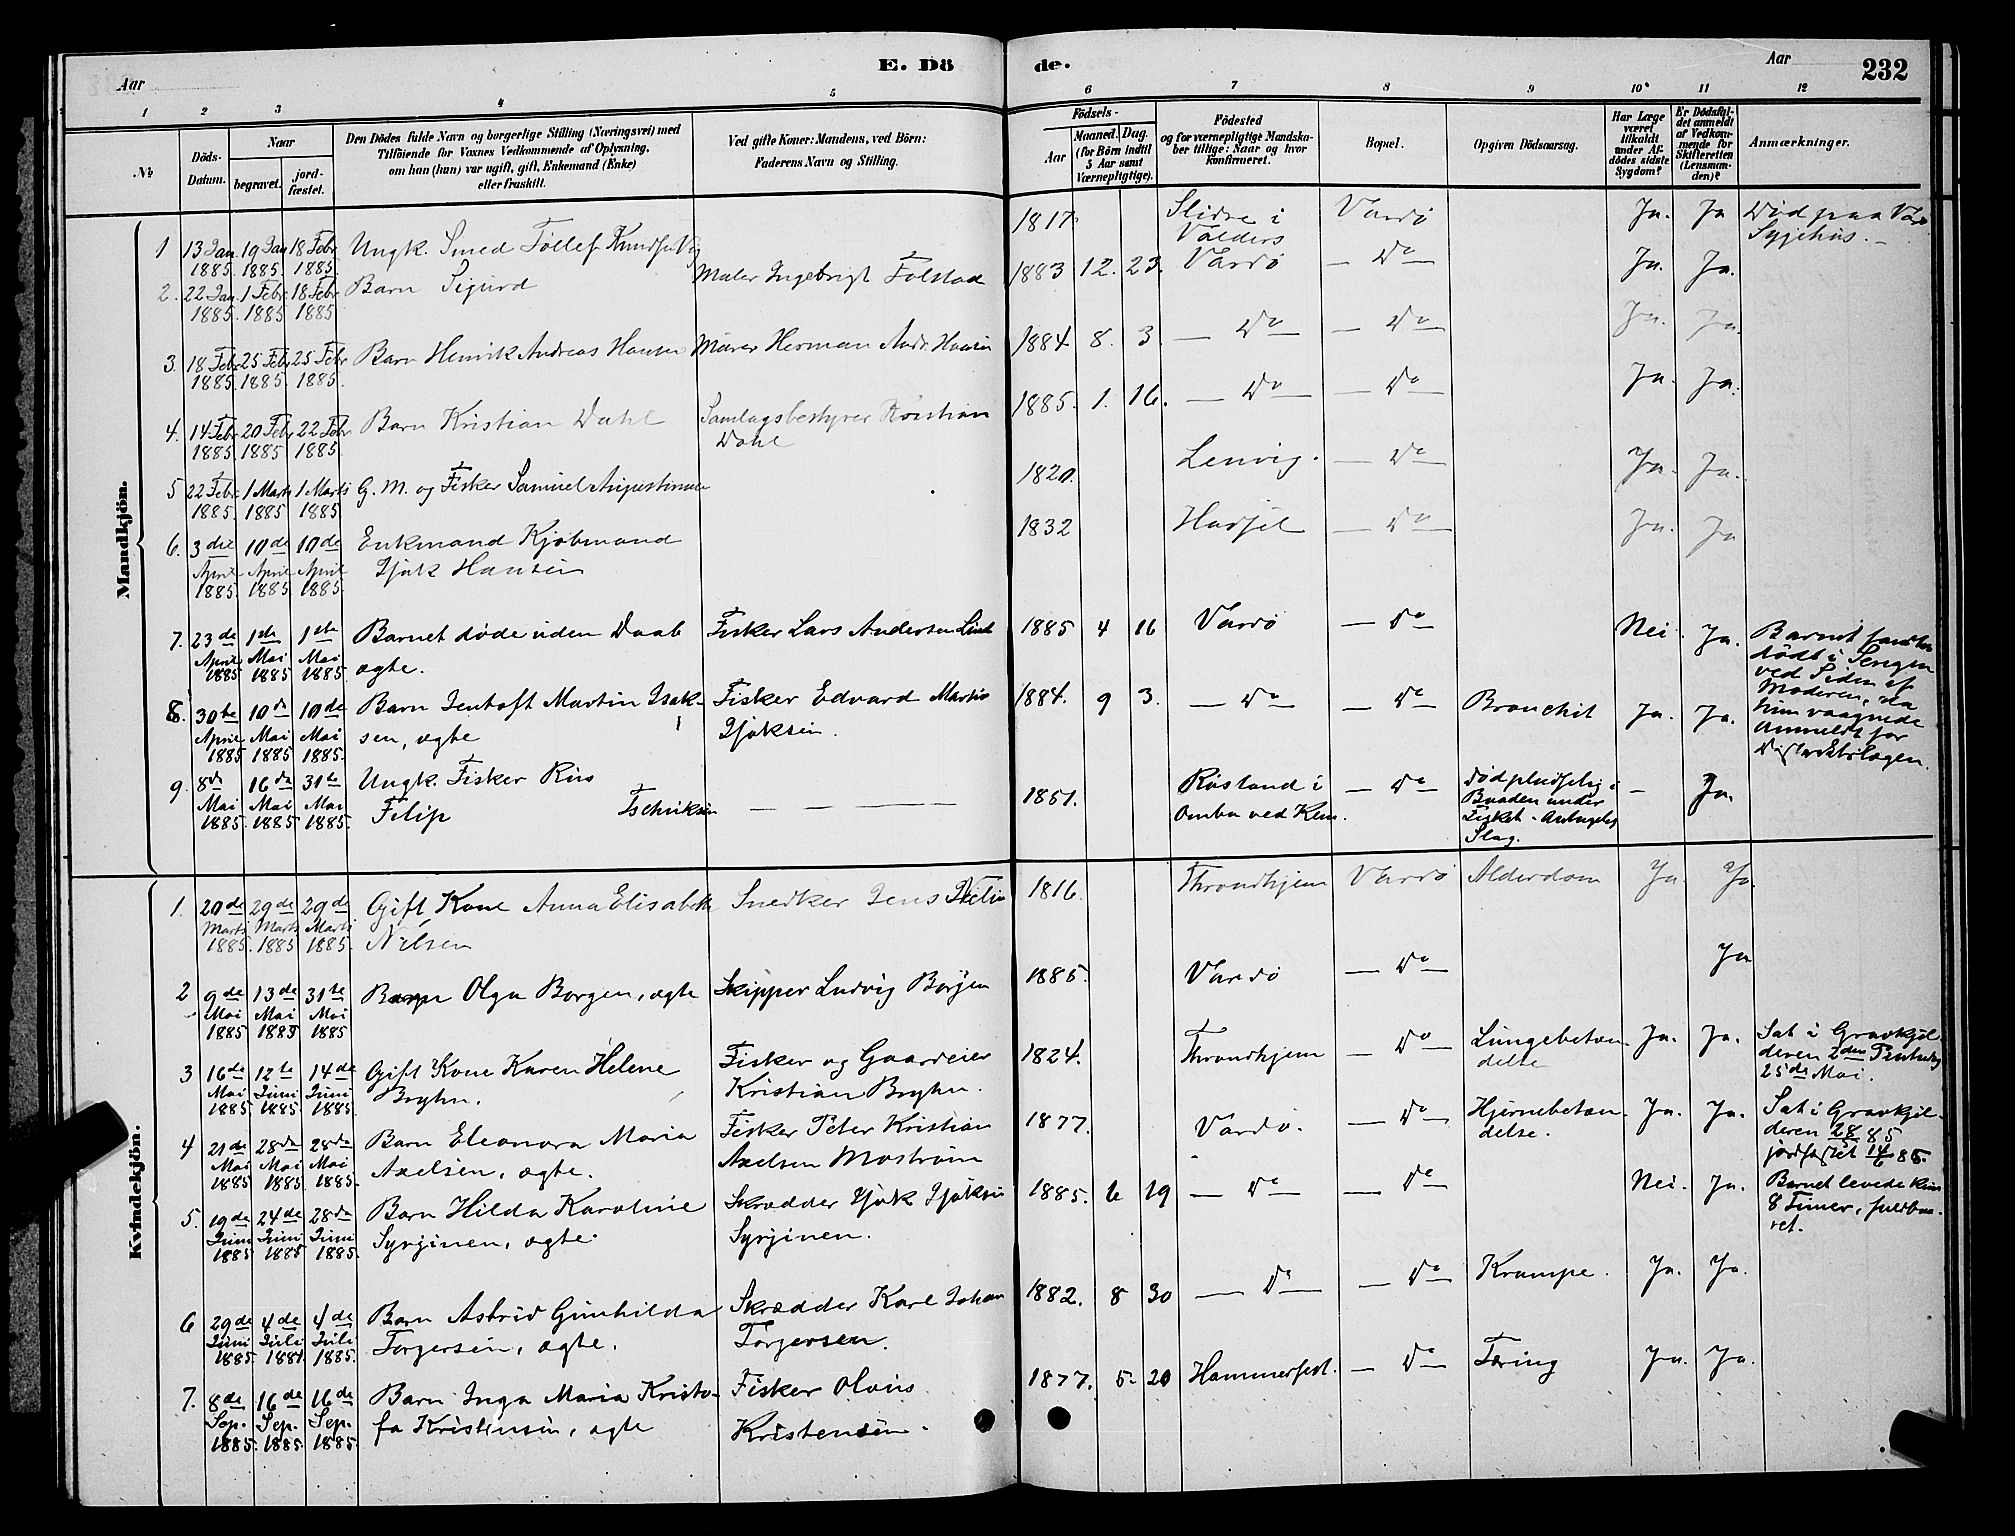 E. Döde.
Aar
Aar
232
1 2 3 4 5 6 7 8 9 10 11 12
№
Döds-Datum.
Naar
begravet.
jord-fæstet.
Den Dödes fulde Navn og borgerlige Stilling (Næringsvei) med
Tilföiende for Voxnes Vedkommende af Oplysning,
om han (hun) var ugift, gift, Enkemand (Enke)
eller fraskilt.
Ved gifte Koner: Mandens, ved Börn:
Faderens Navn og Stilling.
Födsels-
Aar
Maaned. Dag.
(for Börn indtil
5 Aar samt
Værnepligtige).
Födested
og for værnepligtige Mandska-
ber tillige: Naar og hvor
konfirmeret.
Bopæl.
Opgiven Dödsaarsag.
Har Læge
været
tilkaldt
under Af-
dödes sidste
Sygdom?
Er Dödsfal-
det anmeldt
af Vedkom-
mende for
Skifteretten
(Lensman-
den)?
Anmærkninger.
Mandkjön.
1 13 Jan 1885. 19 Jan 1885. 18 Febr 1885. Ungk. Smed Tollef 1817. Slidre i Valders Vardö Ja. Ja Död paa Sygehus.
2. 22 Jan 1885. 1 Febr 1885 18 Febr 1885 Barn Sigurd Maler Ingebrigt Folstad 1883 12. 23. Vardö — Do Ja. Ja.
3. 18 Febr 1885. 25 Febr 1885. 25 Febr 1885. Barn Henrik Andreas Hansen Murer Herman Andr. Hansen 1884 8. 3 — Do — — Do — Ja. Ja.
4. 14 Febr 1885. 20 Febr 1885 22 Febr 1885. Barn Kristian Dahl Samlagsbestyrer Kristian Dahl 1885. 1. 16. — Do — — Do — Ja. Ja.
5 22 Febr 1885. 1 Marts 1885 1 Marts 1885 G. M. og Fisker Samuel Augustinsen 1820. Lenvig. — Do — Ja. Ja.
6. 3die April 1885. 10de April 1885. 10de April 1885. Enkmand Kjöbmand Hansen 1832 Hadsel — Do — Ja. Ja
7. 23de April 1885 1ste Mai 1885 1ste Mai 1885. Barnet döde uden Daab ægte. Fisker Lars Andersen 1885 4 16 Vardö — Do Nei. Ja. Barnet fandtes dödt i Sengen ved Siden af Moderen, da hun vaagnede Anmeldt for Distriktslægen.
8. 30te April 1885 10de Mai 1885 10de Mai 1885. Barn Jentoft Martin Isaksen, ægte Fisker Edvard Martin 1884. 9 3. — Do — — Do — Bronchit Ja. Ja.
9. 8de Mai 1885. 16de Mai 1885 31te Mai 1885. Ungk. Fisker Rus Filip — — — — 1851. Rusland i Omba ved Kem. — Do — död pludselig i Baaden under Fisket. Antagelig Slag. — Ja.
Kvindekjön.
1. 20de Marts 1885. 29de Marts 1885 29de Marts 1885. Gift Kone Anna Elisabeth Nilsen Snedker Jens 1816. Throndhjem Vardö Alderdom Ja. Ja.
2 9de Mai 1885 13de Mai 1885 31te Mai 1885 Barn Olga Borgen, ægte Skipper Ludvig Borgen 1885. Vardö — Do — Ja
3 16de Mai 1885 12te Juni 1885. 14de Juni 1885. Gift Kone Karen Helene Bryhn. Fisker og Gaardeier Kristian Bryhn. 1824. Throndhjem — Do — Lungebetændelse Ja. Ja. Sat i Gravkjelderen 2den Pintsedag 25de Mai.
4 21de Mai 1885 28de Mai 1885 28de Mai 1885. Barn Eleonora Maria Axelsen, ægte. Fisker Peter Kristian Axelsen Moström 1877. Vardö. — Do — Hjernebetændelse. Ja. Ja. Sat i Gravkjelderen 28/5 85 jordfæstet 14/6 85.
5. 19de Juni 1885 24de Juni 1885 28de Juni 1885. Barn Hilda Karoline Syrjinen, ægte. Skrædder Syrjinen. 1885. 6 19 — Do — — Do Nei. Ja. Barnet levede kun 8 Timer, fuldbaaret.
6 29de Juni 1885 4de Juli 1885. 4de Juli 1885. Barn Astrid Gunhilda Torgersen, ægte. Skrædder Karl Johan Torgersen. 1882. 8 30 — Do — — Do — Krampe. Ja. Ja.
7. 8de Sep. 1885 16de Sep. 1885. 16de Sep. 1885. Barn Inga Maria Kristofa Kristensen, ægte Fisker Olaus Kristensen. 1877. 5. 20 Hammerfest. — Do — Tæring Ja. Ja.